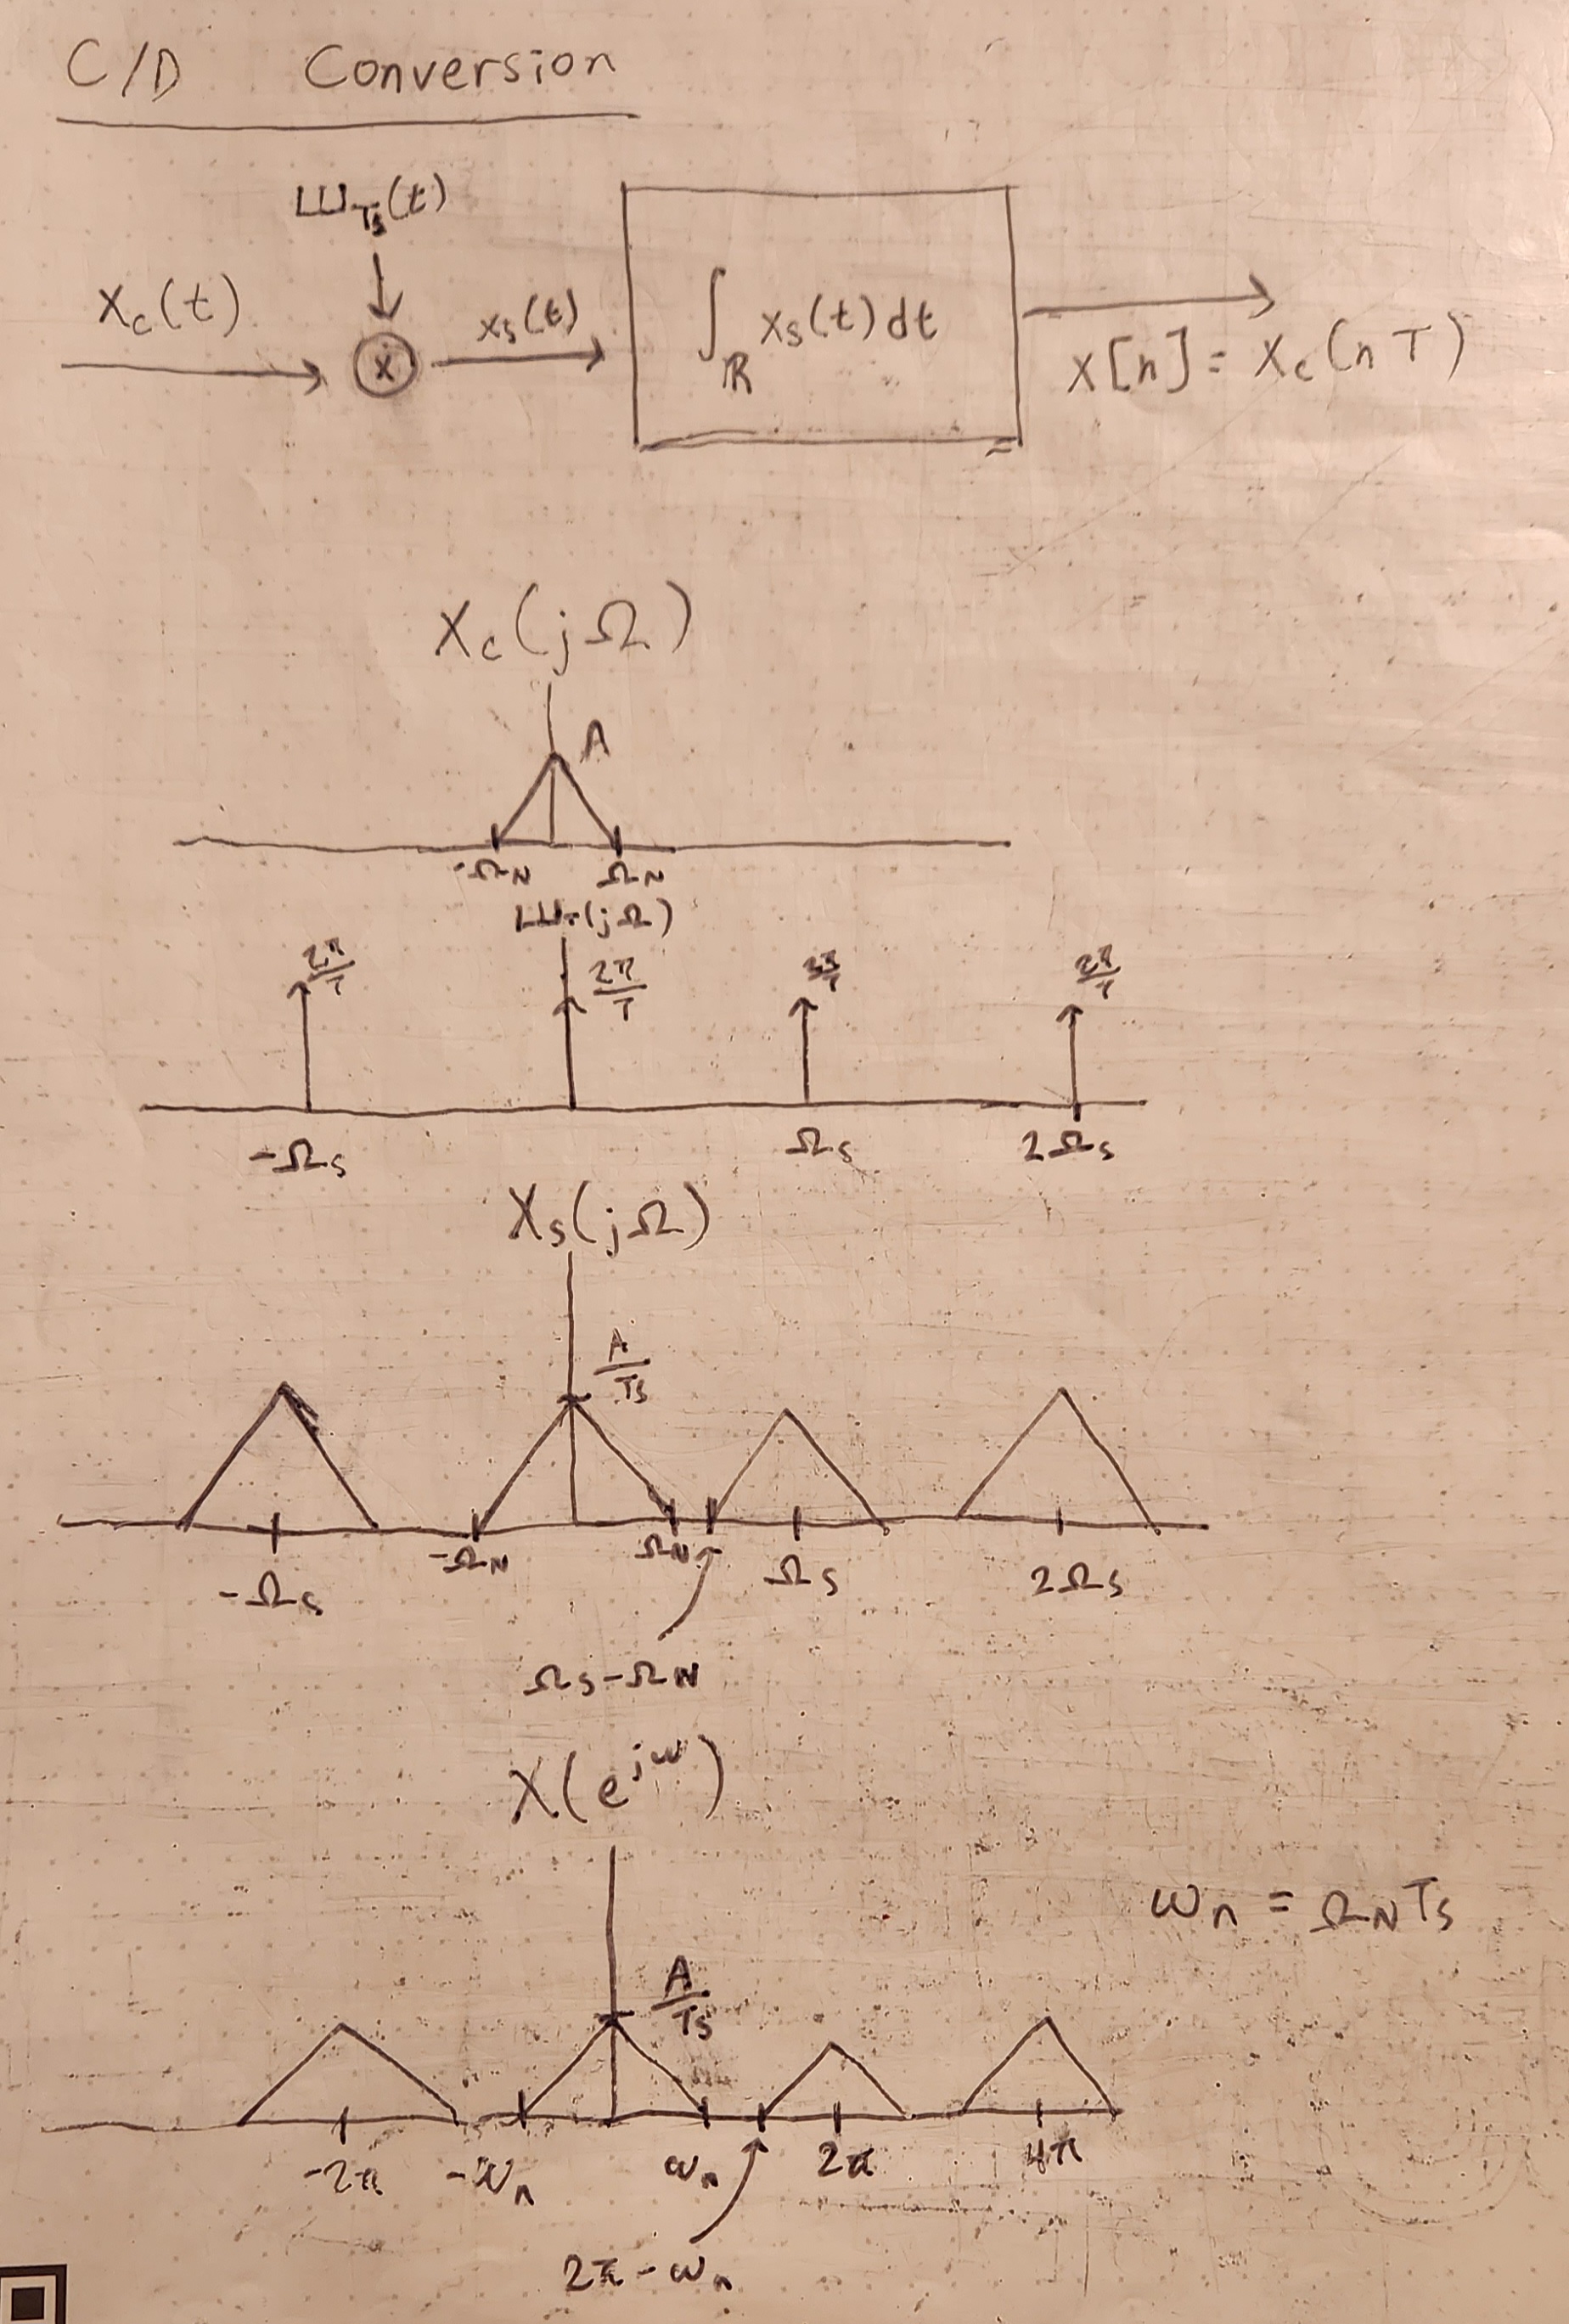 C/D Conversion
Ш_Ts(t)
x_c(t)
x
x_s(t)
∫_ℝ x_s(t)dt
x[n] = x_c(nT)
X_c(jΩ)
A
-Ω_N Ω_N
Ш_T(jΩ)
2π/T 2π/T 2π/T
-Ω_s Ω_s 2Ω_s
X_s(jΩ)
A/Ts
-Ω_s -Ω_N Ω_N Ω_s 2Ω_s
Ω_s-Ω_N
X(e^jω)
ω_n = Ω_N T_s
A/Ts
-2π -ω_n ω_n 2π 4π
2π-ω_n